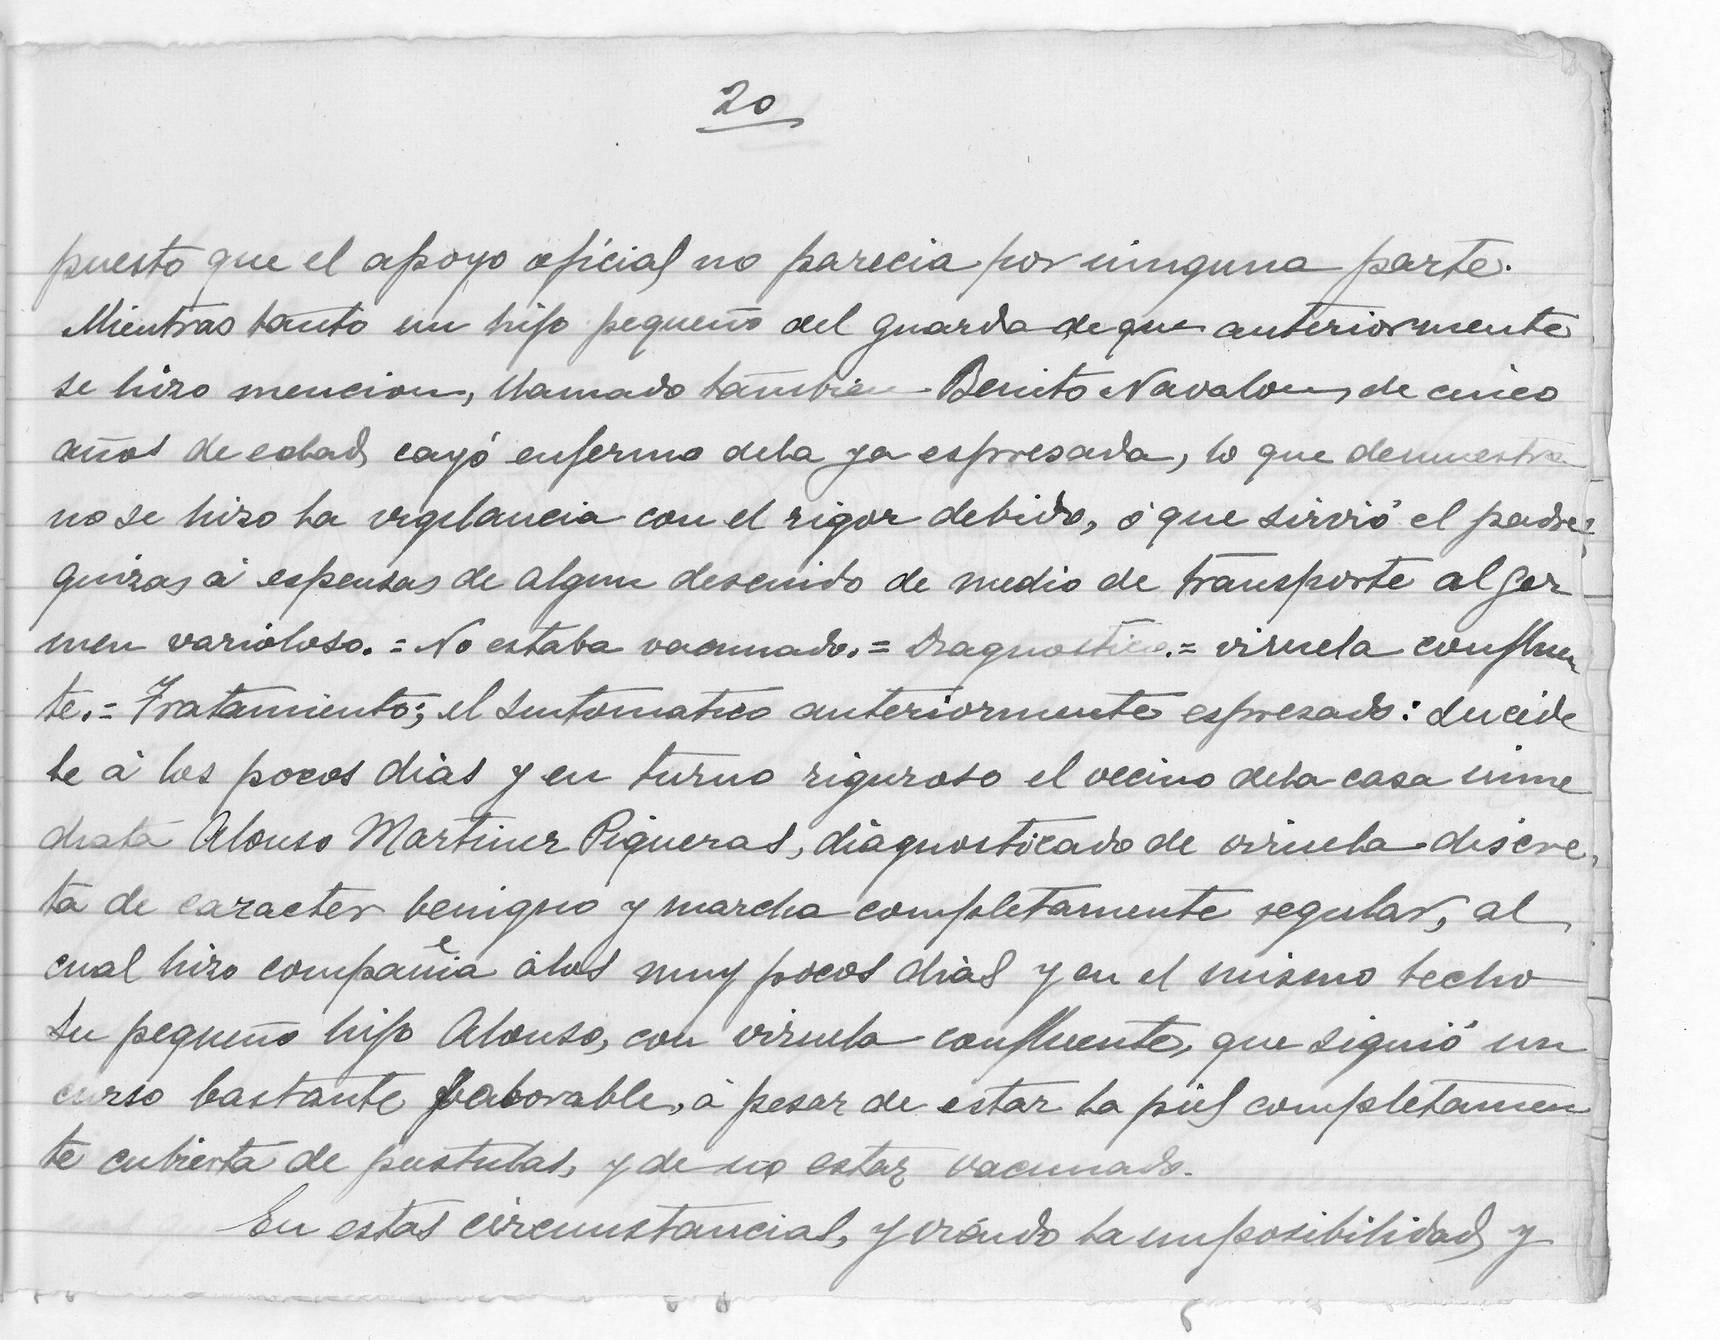 20
puesto que el apoyo oficial no parecia por ninguna parte.
Mientras tanto un hijo pequeño del guarda de que anteriormente
se hizo mencion, llamado tambien Benito Navalon, de cinco
años de edad, cayó enfermo dela ya espresada, lo que demuestra
no se hizo la vigilancia con el rigor debido, ó que sirvió el padre,
quizas á espensas de algun descuido de medio de transporte al ger
men varioloso. = No estaba vacunado. = Diagnostico. = viruela confluen
te. = Tratamiento; el sintomatico anteriormente espresado: Sucede
le á los pocos dias y en turno riguroso el vecino dela casa inme
diata Alonso Martinez Piqueras, diagnosticado de viruela discre,
ta de caracter benigno y marcha completamente regular, al
cual hizo compañia álos muy pocos dias y en el mismo lecho
su pequeño hijo Alonso, con viruela confluente, que siguió un
curso bastante faborable, á pesar de estar la piel completamen
te cubierta de pustulas, y de no estar vacunado.
En estas circunstancias, y viendo la imposibilidad y